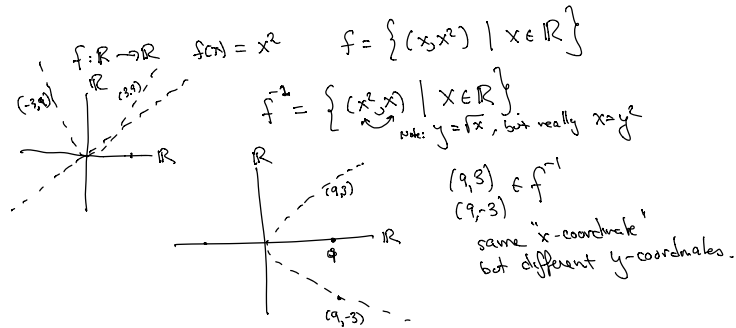 f : ℝ → ℝ f(x) = x² f = { (x,x²) | x ∈ ℝ }
ℝ
(-3,9) (3,9)
f⁻¹ = { (x²,x) | x ∈ ℝ }
Note: y = √x, but really x = y²
ℝ
ℝ
(9,3)
ℝ
9
(9,-3)
(9,3) ∈ f⁻¹
(9,-3)
same "x-coordinate"
but different y-coordinates.